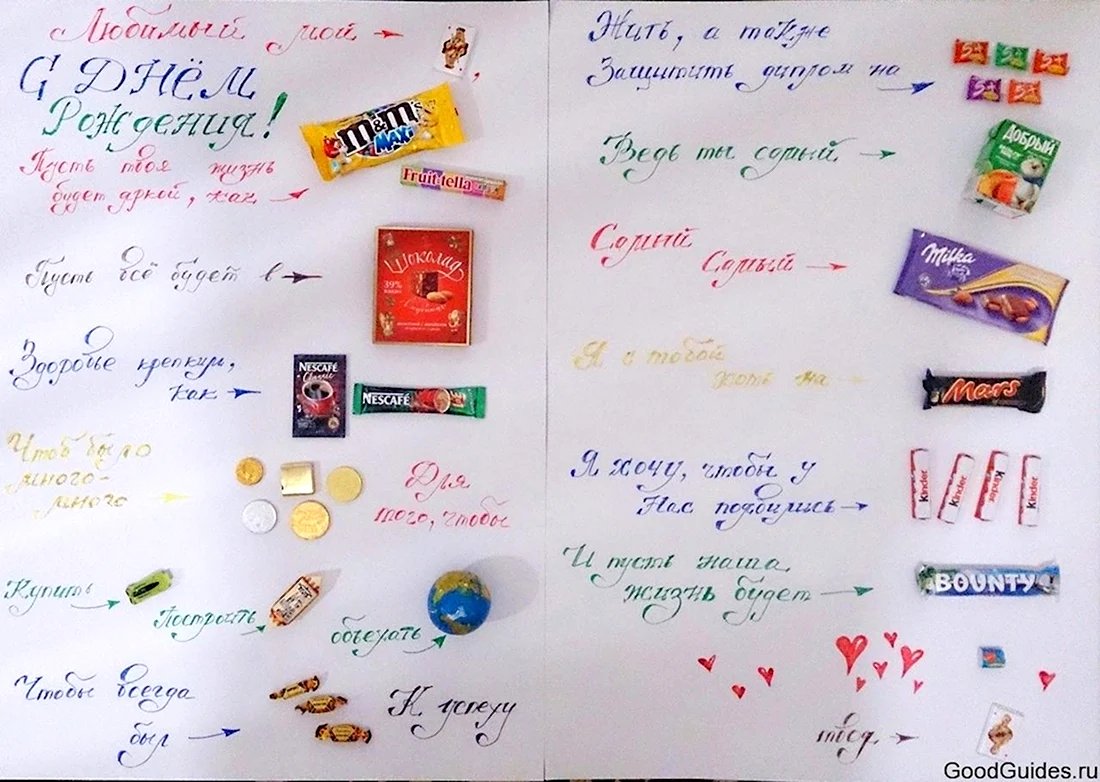 Любимый мой
,
С ДНЁМ
Рождения!
m&m's
MAXI
Пусть твоя жизнь
будет яркой, как
Fruit-tella
Пусть всё будет в
Шоколад
39%
Здоровье крепким,
как
NESCAFÉ
Classic
NESCAFÉ
Чтоб было
много-
много
Для
того, чтобы
Купить
Построить
объехать
Чтобы всегда
был
К успеху
Жить, а также
Защитить диплом на
5+
5+
5+
5+
5+
Ведь ты самый
Добрый
Самый
Самый
Milka
Я с тобой
хоть на
Mars
Я хочу, чтобы у
Нас появились
Kinder
Kinder
Kinder
Kinder
И пусть наша
жизнь будет
BOUNTY
твоя
GoodGuides.ru